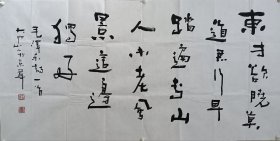 東方欲曉莫
道君行早
踏遍青山
人未老風
景這邊
獨好
毛澤東詞一首